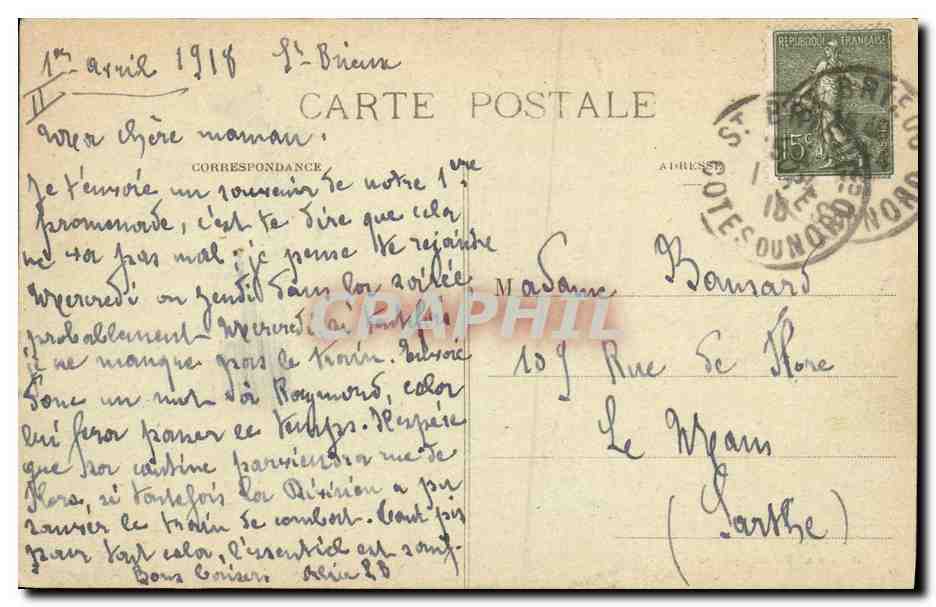 1er avril 1918 St-Brieux
II
CARTE POSTALE
Ma chère maman.
CORRESPONDANCE
Je t'envoie un souvenir de notre 1ere
promenade, c'est te dire que cela
ne va pas mal. je pense te rejoindre
Mercredi ou Jeudi dans la soirée
probablement Mercredi si toutefois
je ne manque pas le train. Envoie
donc un mot à Raymond, cela
lui fera passer le temps. J'espère
que sa cantine parviendra rue de
Flore, si toutefois la Division a pu
sauver le train de combat. Tant pis
pour tout cela, l'essentiel est sauf.
Bons baisers
ADRESSE
Madame Bansard
109 Rue de Flore
Le Mans
(Sarthe)
REPUBLIQUE FRANÇAISE
15c
ST BRIEUC
COTES DU NORD
CPAPHIL